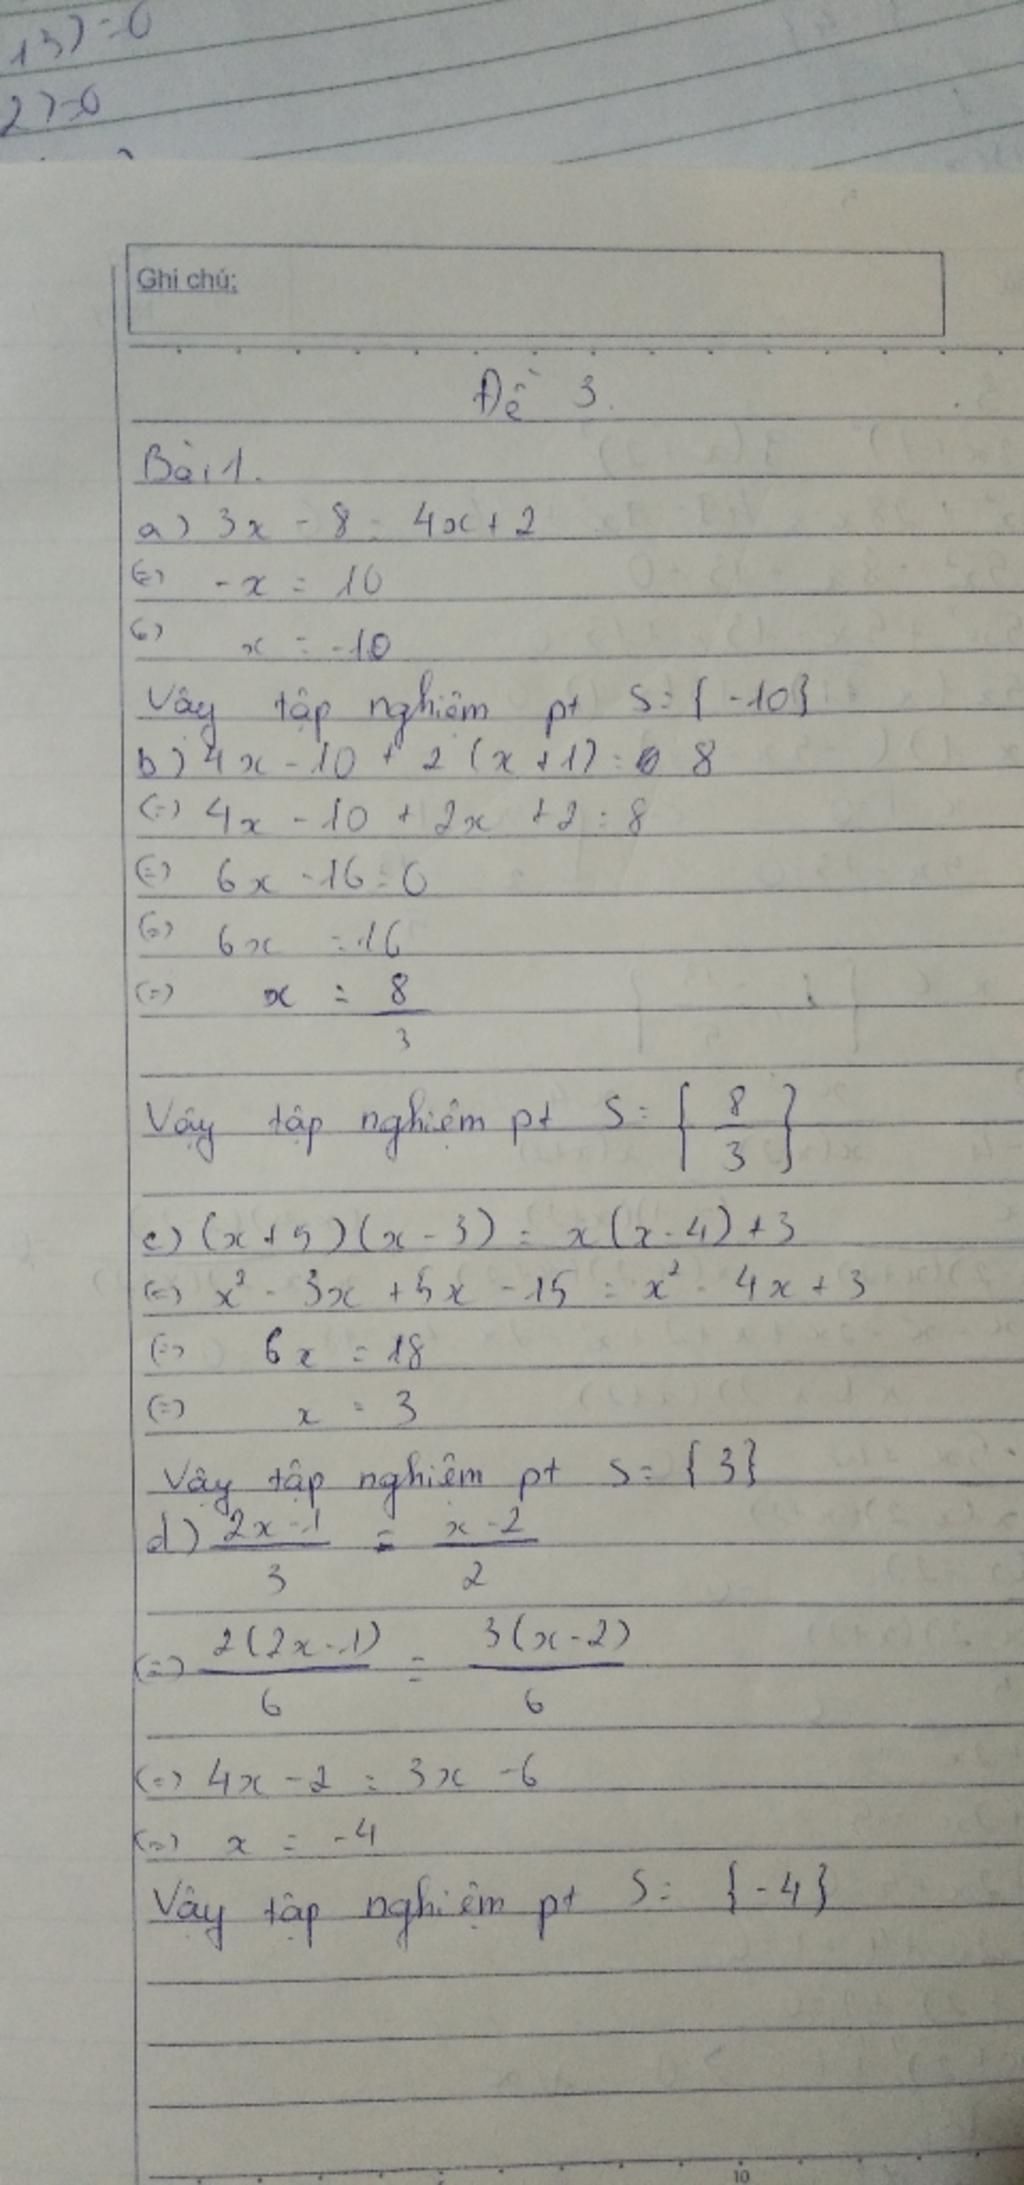 13) = 0
2) = 0
Ghi chú:
Đề 3.
Bài 1.
a) 3x - 8 = 4x + 2
(=) -x = 10
(=) x = -10
Vậy tập nghiệm pt S = { -10}
b) 4x - 10 + 2 (x + 1) = 8
(=) 4x - 10 + 2x + 2 = 8
(=) 6x - 16 = 0
(=) 6x = 16
(=) x = 8/3
Vậy tập nghiệm pt S = { 8/3 }
c) (x + 5) (x - 3) = x (x - 4) + 3
(=) x² - 3x + 5x - 15 = x² - 4x + 3
(=) 6x = 18
(=) x = 3
Vậy tập nghiệm pt S = { 3}
d) 2x - 1 / 3 = x - 2 / 2
(=) 2(2x - 1) / 6 = 3(x - 2) / 6
(=) 4x - 2 = 3x - 6
(=) x = -4
Vậy tập nghiệm pt S = { -4}
10